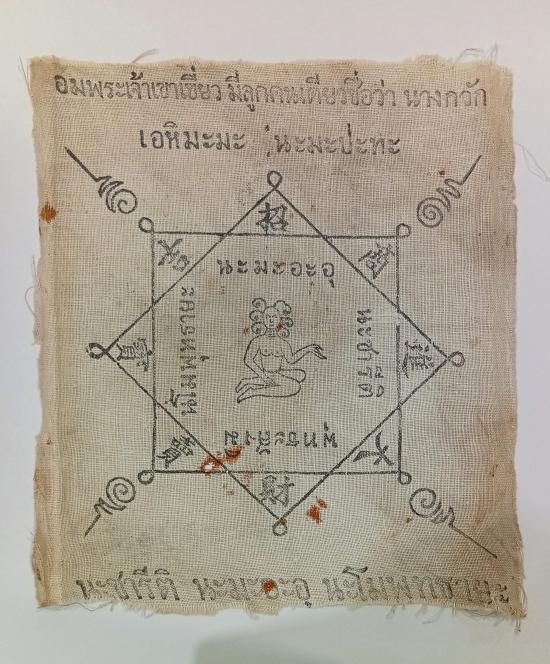 อมพระเจ้าเขาเขียว มีลูกคนเดียวชื่อว่า นางกวัก
เอหิมะมะ นะมะปะทะ
招
นะมะอะอุ
นะชารีติ
นะโมพุทธายะ
พุทธะสังมิ
財
寶
進
นะชารีติ นะมะอะอุ นะโมพุทธายะ